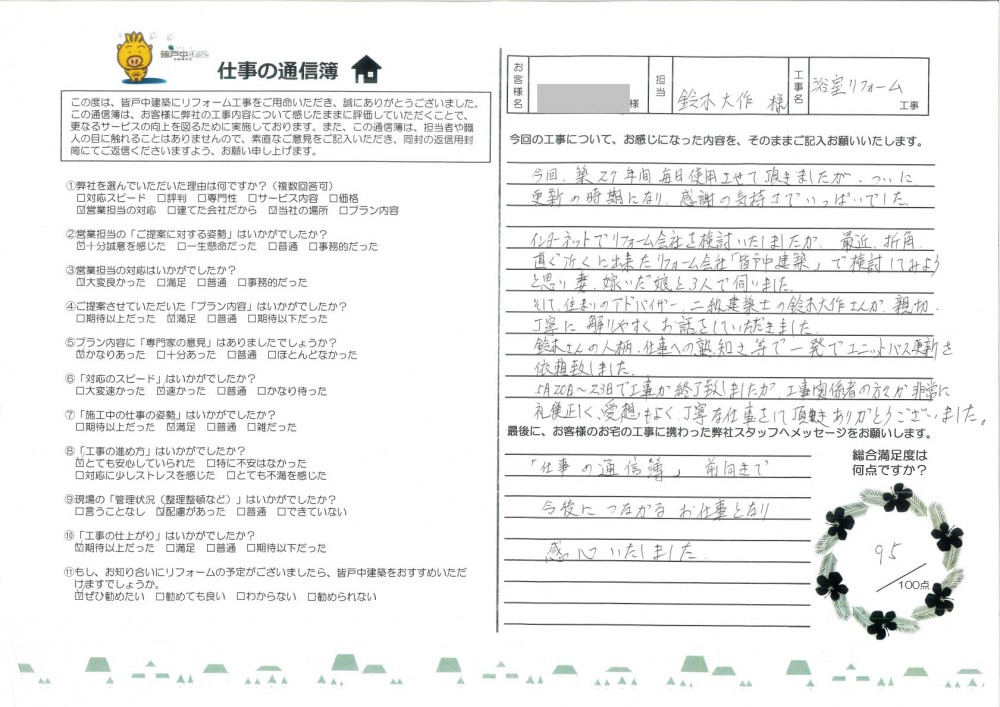 皆戸中建築
仕事の通信簿
この度は、皆戸中建築にリフォーム工事をご用命いただき、誠にありがとうございました。
この通信簿は、お客様に弊社の工事内容について感じたままに評価していただくことで、
更なるサービスの向上を図るために実施しております。また、この通信簿は、担当者や職
人の目に触れることはありませんので、素直なご意見をご記入いただき、同封の返信用封
筒にてご返信くださいますよう、お願い申し上げます。
①弊社を選んでいただいた理由は何ですか？（複数回答可）
□対応スピード □評判 □専門性 □サービス内容 □価格
☑営業担当の対応 □建てた会社だから ☑当社の場所 □プラン内容
②営業担当の「ご提案に対する姿勢」はいかがでしたか？
☑十分誠意を感じた □一生懸命だった □普通 □事務的だった
③営業担当の対応はいかがでしたか？
☑大変良かった □満足 □普通 □事務的だった
④ご提案させていただいた「プラン内容」はいかがでしたか？
□期待以上だった ☑満足 □普通 □期待以下だった
⑤プラン内容に「専門家の意見」はありましたでしょうか？
☑かなりあった □十分あった □普通 □ほとんどなかった
⑥「対応のスピード」はいかがでしたか？
□大変速かった ☑速かった □普通 □かなり待った
⑦「施工中の仕事の姿勢」はいかがでしたか？
□期待以上だった ☑満足 □普通 □雑だった
⑧「工事の進め方」はいかがでしたか？
☑とても安心していられた □特に不安はなかった
□対応に少しストレスを感じた □とても不満を感じた
⑨現場の「管理状況（整理整頓など）」はいかがでしたか？
□言うことなし ☑配慮があった □普通 □できていない
⑩「工事の仕上がり」はいかがでしたか？
☑期待以上だった □満足 □普通 □期待以下だった
⑪もし、お知り合いにリフォームの予定がございましたら、皆戸中建築をおすすめいただ
けますでしょうか。
☑ぜひ勧めたい □勧めても良い □わからない □勧められない
お客様名 様 担当 鈴木大作 様 工事名 浴室リフォーム 工事
今回の工事について、お感じになった内容を、そのままご記入お願いいたします。
今回、築27年間毎日使用させて頂きましたが、ついに
更新の時期になり、感謝の気持ちでいっぱいでした。
インターネットでリフォーム会社を検討いたしましたが、最近、折角、
直ぐ近くに出来たリフォーム会社「皆戸中建築」で検討してみよう
と思い妻、嫁いだ娘と3人で伺いました。
そして住まいのアドバイザー 二級建築士の鈴木大作さんが、親切、
丁寧に解りやすくお話をしていただきました。
鈴木さんの人柄、仕事への熟知さ等で一発でユニットバス更新を
依頼致しました。
5月20日～23日で工事が終了致しましたが工事関係者の方々が非常に
礼儀正しく、愛想もよく丁寧な仕事をして頂きありがとうございました。
最後に、お客様のお宅の工事に携わった弊社スタッフへメッセージをお願いします。
「仕事の通信簿」前向きで
今後につながるお仕事となり
感心いたしました。
総合満足度は
何点ですか？
95
／100点